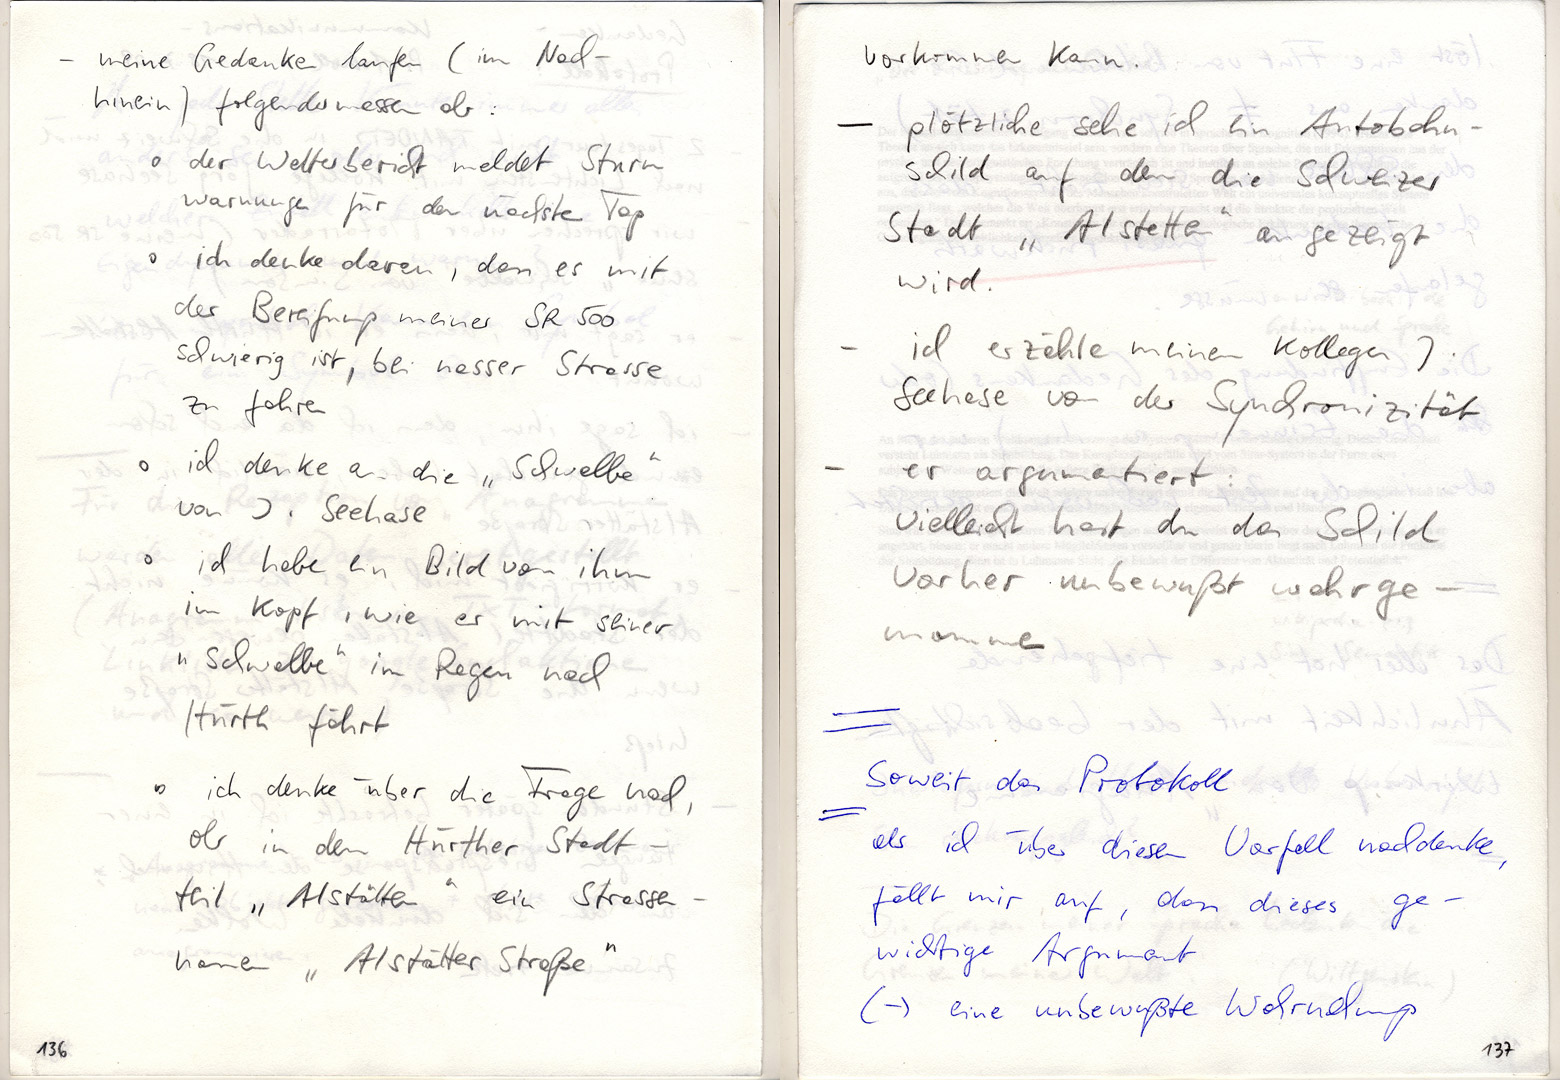 – meine Gedanken laufen (im Nach-
hinein) folgendermassen ab:
o der Wetterbericht meldet Sturm
warnungen für den nächsten Tag
o ich denke daran, dass es mit
der Bereifung meiner SR 500
schwierig ist, bei nasser Strasse
zu fahren
o ich denke an die „Schwalbe"
von J. Seehase
o ich habe ein Bild von ihm
im Kopf, wie er mit seiner
"Schwalbe" im Regen nach
Hürth fährt
o ich denke über die Frage nach,
ob in dem Hürther Stadt-
teil „Alstätten" ein Strassen-
namen „Alstätter Straße"
136
vorkommen kann.
– plötzliche sehe ich ein Autobahn-
schild auf dem die Schweizer
Stadt „Alstetten" angezeigt
wird.
– ich erzähle meinen Kollegen J.
Seehase von der Synchronizität
– er argumentiert:
vielleicht hast du das Schild
vorher unbewußt wahrge-
nommen
Soweit das Protokoll
als ich über diesen Vorfall nachdenke,
fällt mir auf, dass dieses ge-
wichtige Argument
(→) eine unbewußte Wahrnehmung
137